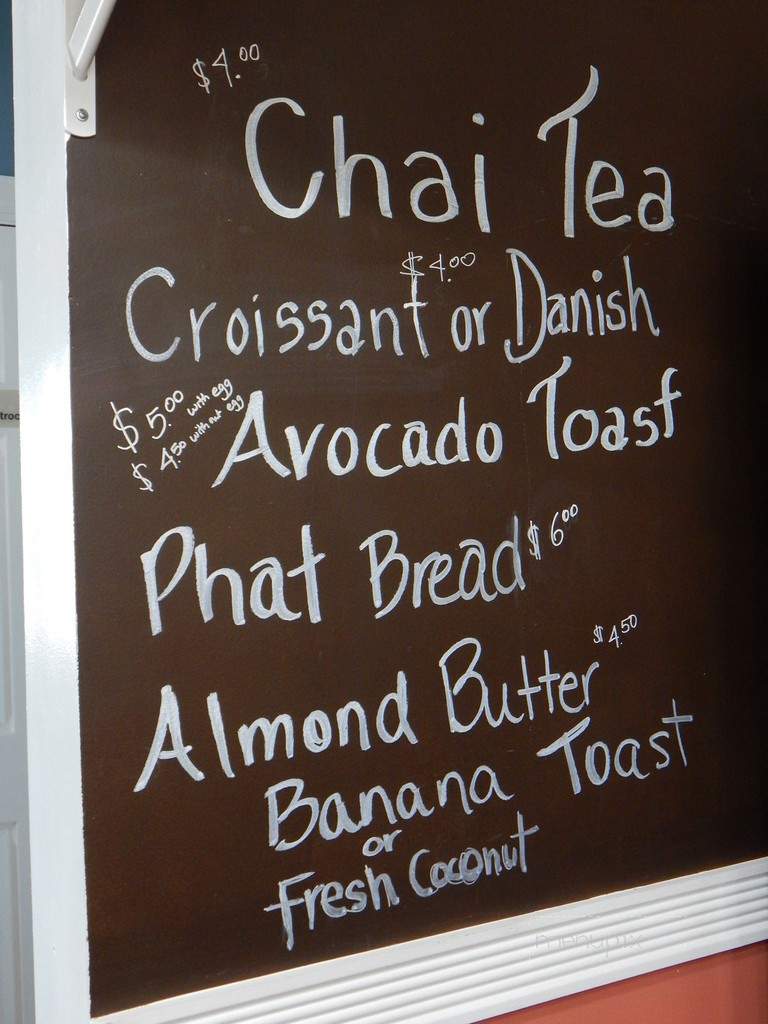 $4.00
Chai Tea
$4.00
Croissant or Danish
$5.00 with egg
$4.50 with out egg
Avocado Toast
Phat Bread $6.00
$4.50
Almond Butter
Banana Toast
or
Fresh Coconut
troc
menupix